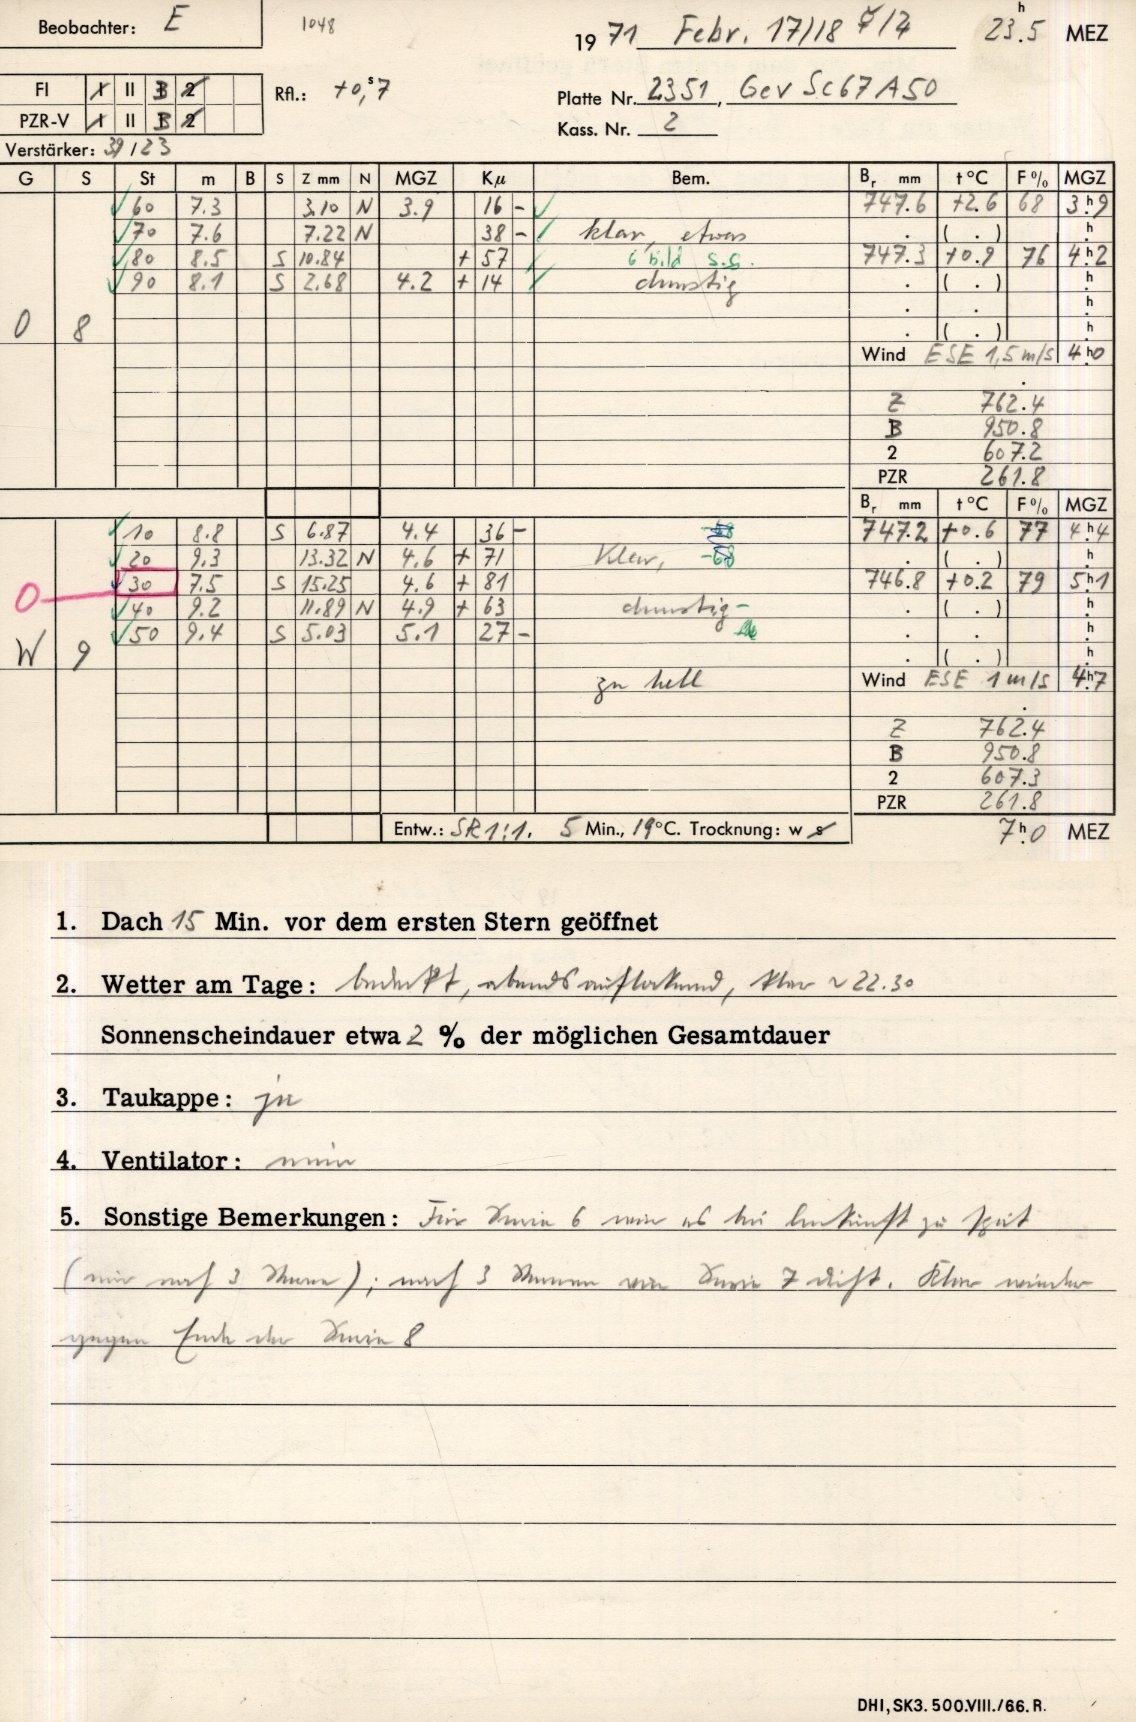 Beobachter: E 1048 1971 Febr. 17/18 ☿/♃ 23.5 h MEZ
FI I II B 2 Rfl.: +0,s7 Platte Nr. 2351, Gev Sc67A50
PZR-V I II B 2 Kass. Nr. 2
Verstärker: 39/23
G S St m B S Z mm N MGZ Kμ Bem. Br mm t°C F% MGZ
60 7.3 3.10 N 3.9 16 - 747.6 +2.6 68 3.h9
70 7.6 7.22 N 38 - klar, etwas . ( . ) h
80 8.5 S 10.84 + 57 6 bild s.g. 747.3 +0.9 76 4.h2
90 8.1 S 2.68 4.2 + 14 dunstig . ( . ) h
. . h
O 8 . ( . ) h
Wind ESE 1,5 m/s 4.h0
Z 762.4
B 950.8
2 607.2
PZR 261.8
Br mm t°C F% MGZ
10 8.8 S 6.87 4.4 36 - 747.2 +0.6 77 4.h4
20 9.3 13.32 N 4.6 + 71 Klar, -68 . ( . ) h
O 30 7.5 S 15.25 4.6 + 81 746.8 +0.2 79 5.h1
40 9.2 11.89 N 4.9 + 63 dunstig - . ( . ) h
50 9.4 S 5.03 5.1 27 - . . h
W 9 . ( . ) h
zu hell Wind ESE 1 m/s 4.h7
Z 762.4
B 950.8
2 607.3
PZR 261.8
Entw.: SR 1:1. 5 Min., 19°C. Trocknung: w s 7.h0 MEZ
1. Dach 15 Min. vor dem ersten Stern geöffnet
2. Wetter am Tage: bedeckt, abends auflockernd, klar ~ 22.30
Sonnenscheindauer etwa 2 % der möglichen Gesamtdauer
3. Taukappe: ja
4. Ventilator: nein
5. Sonstige Bemerkungen: Für Serie 6 war es bei Ankunft zu spät
(nur noch 3 Sterne); nach 3 Sternen von Serie 7 dicht. Klar wieder
gegen Ende der Serie 8
DHI, SK3. 500.VIII./66. R.